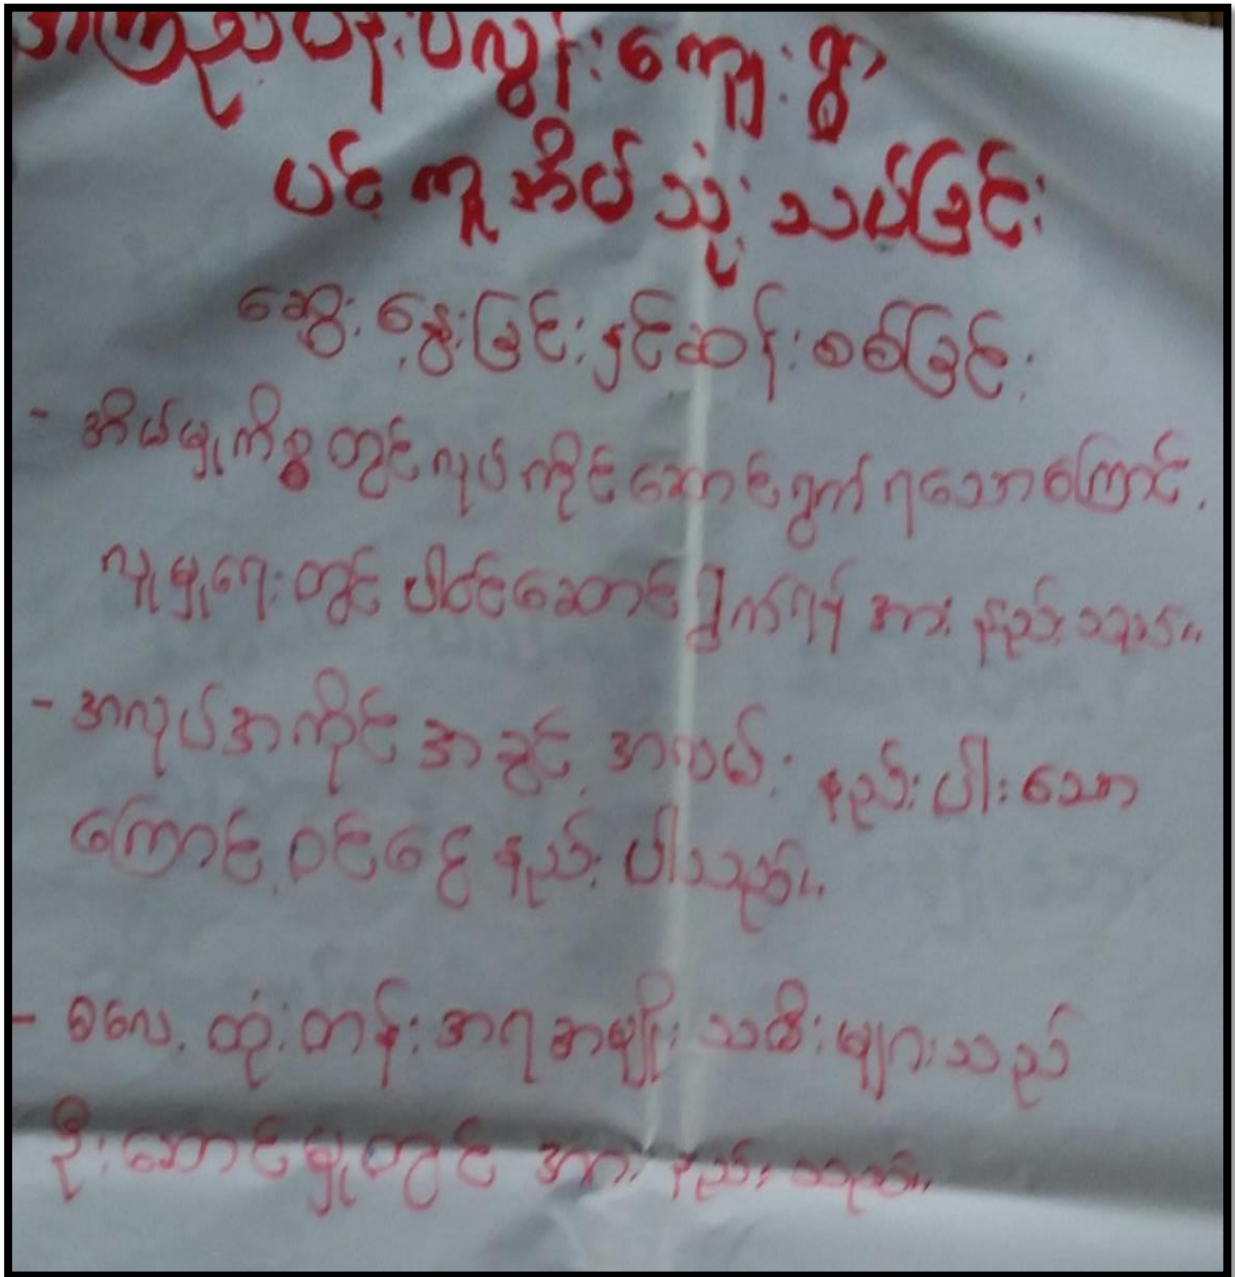 အကြည်ပန်းပလွန်းကျေးရွာ
ပင်ကူအိမ်သုံးသပ်ခြင်း
ဆွေးနွေးခြင်းနှင့်ဆန်းစစ်ခြင်း
- အိမ်မှုကိစ္စတွင်လုပ်ကိုင်ဆောင်ရွက်ရသောကြောင့်
လူမှုရေးတွင် ပါဝင်ဆောင်ရွက်ရန် အားနည်းသည်။
- အလုပ်အကိုင် အခွင့် အလမ်း နည်းပါးသော
ကြောင့် ဝင်ငွေ နည်းပါသည်။
- ဓလေ့ထုံးတန်းအရ အမျိုးသမီးများသည်
ဦးဆောင်မှုတွင် အားနည်းသည်။